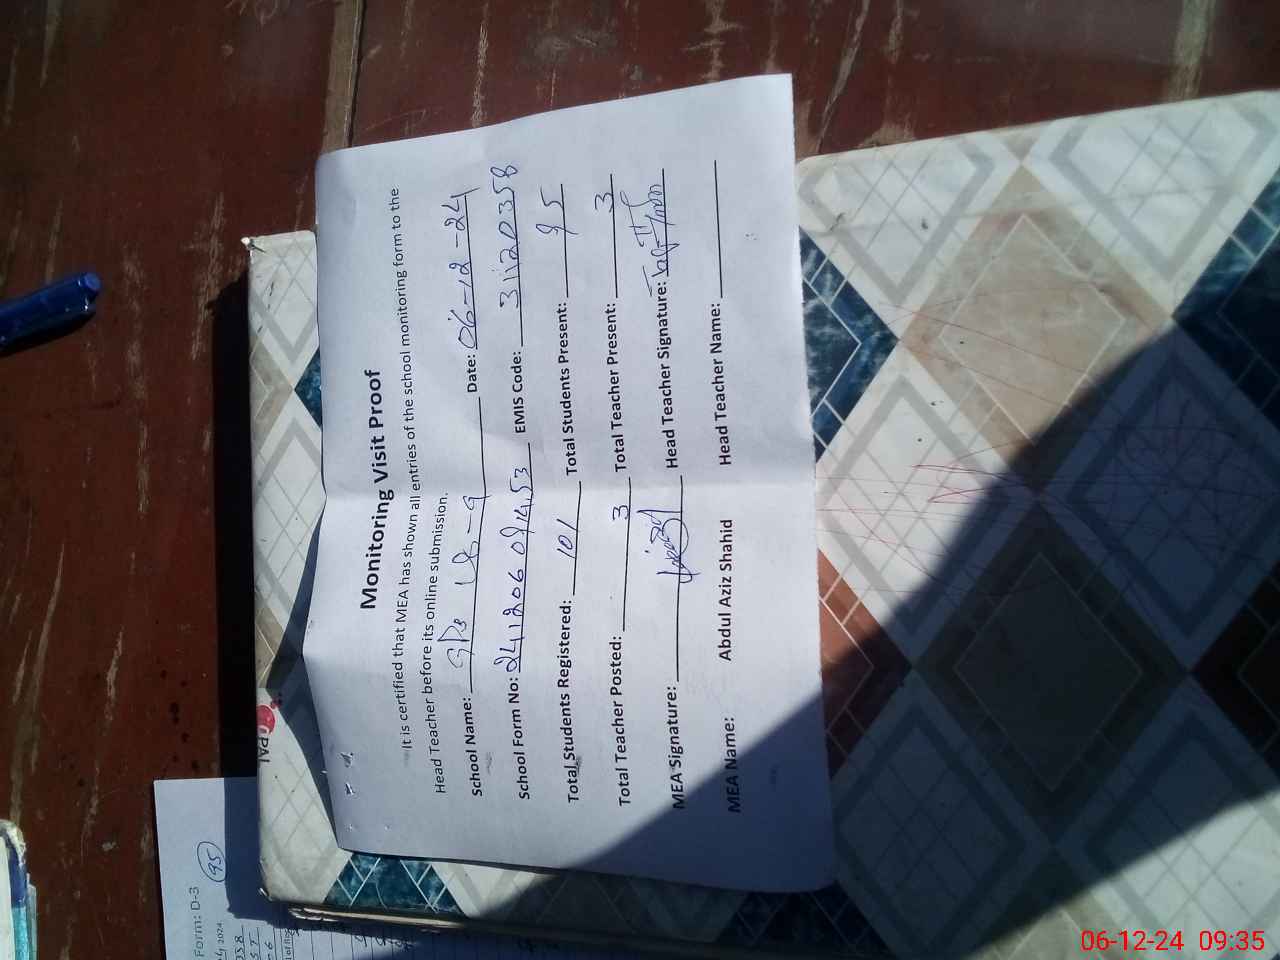 Monitoring Visit Proof
It is certified that MEA has shown all entries of the school monitoring form to the
Head Teacher before its online submission.
School Name: Date: 06-12-24
School Form No: EMIS Code: 31120358
Total Students Registered: 101 Total Students Present: 95
Total Teacher Posted: 3 Total Teacher Present: 3
MEA Signature: Head Teacher Signature:
MEA Name: Abdul Aziz Shahid Head Teacher Name:
Form: D-3
95
2024
06-12-24 09:35